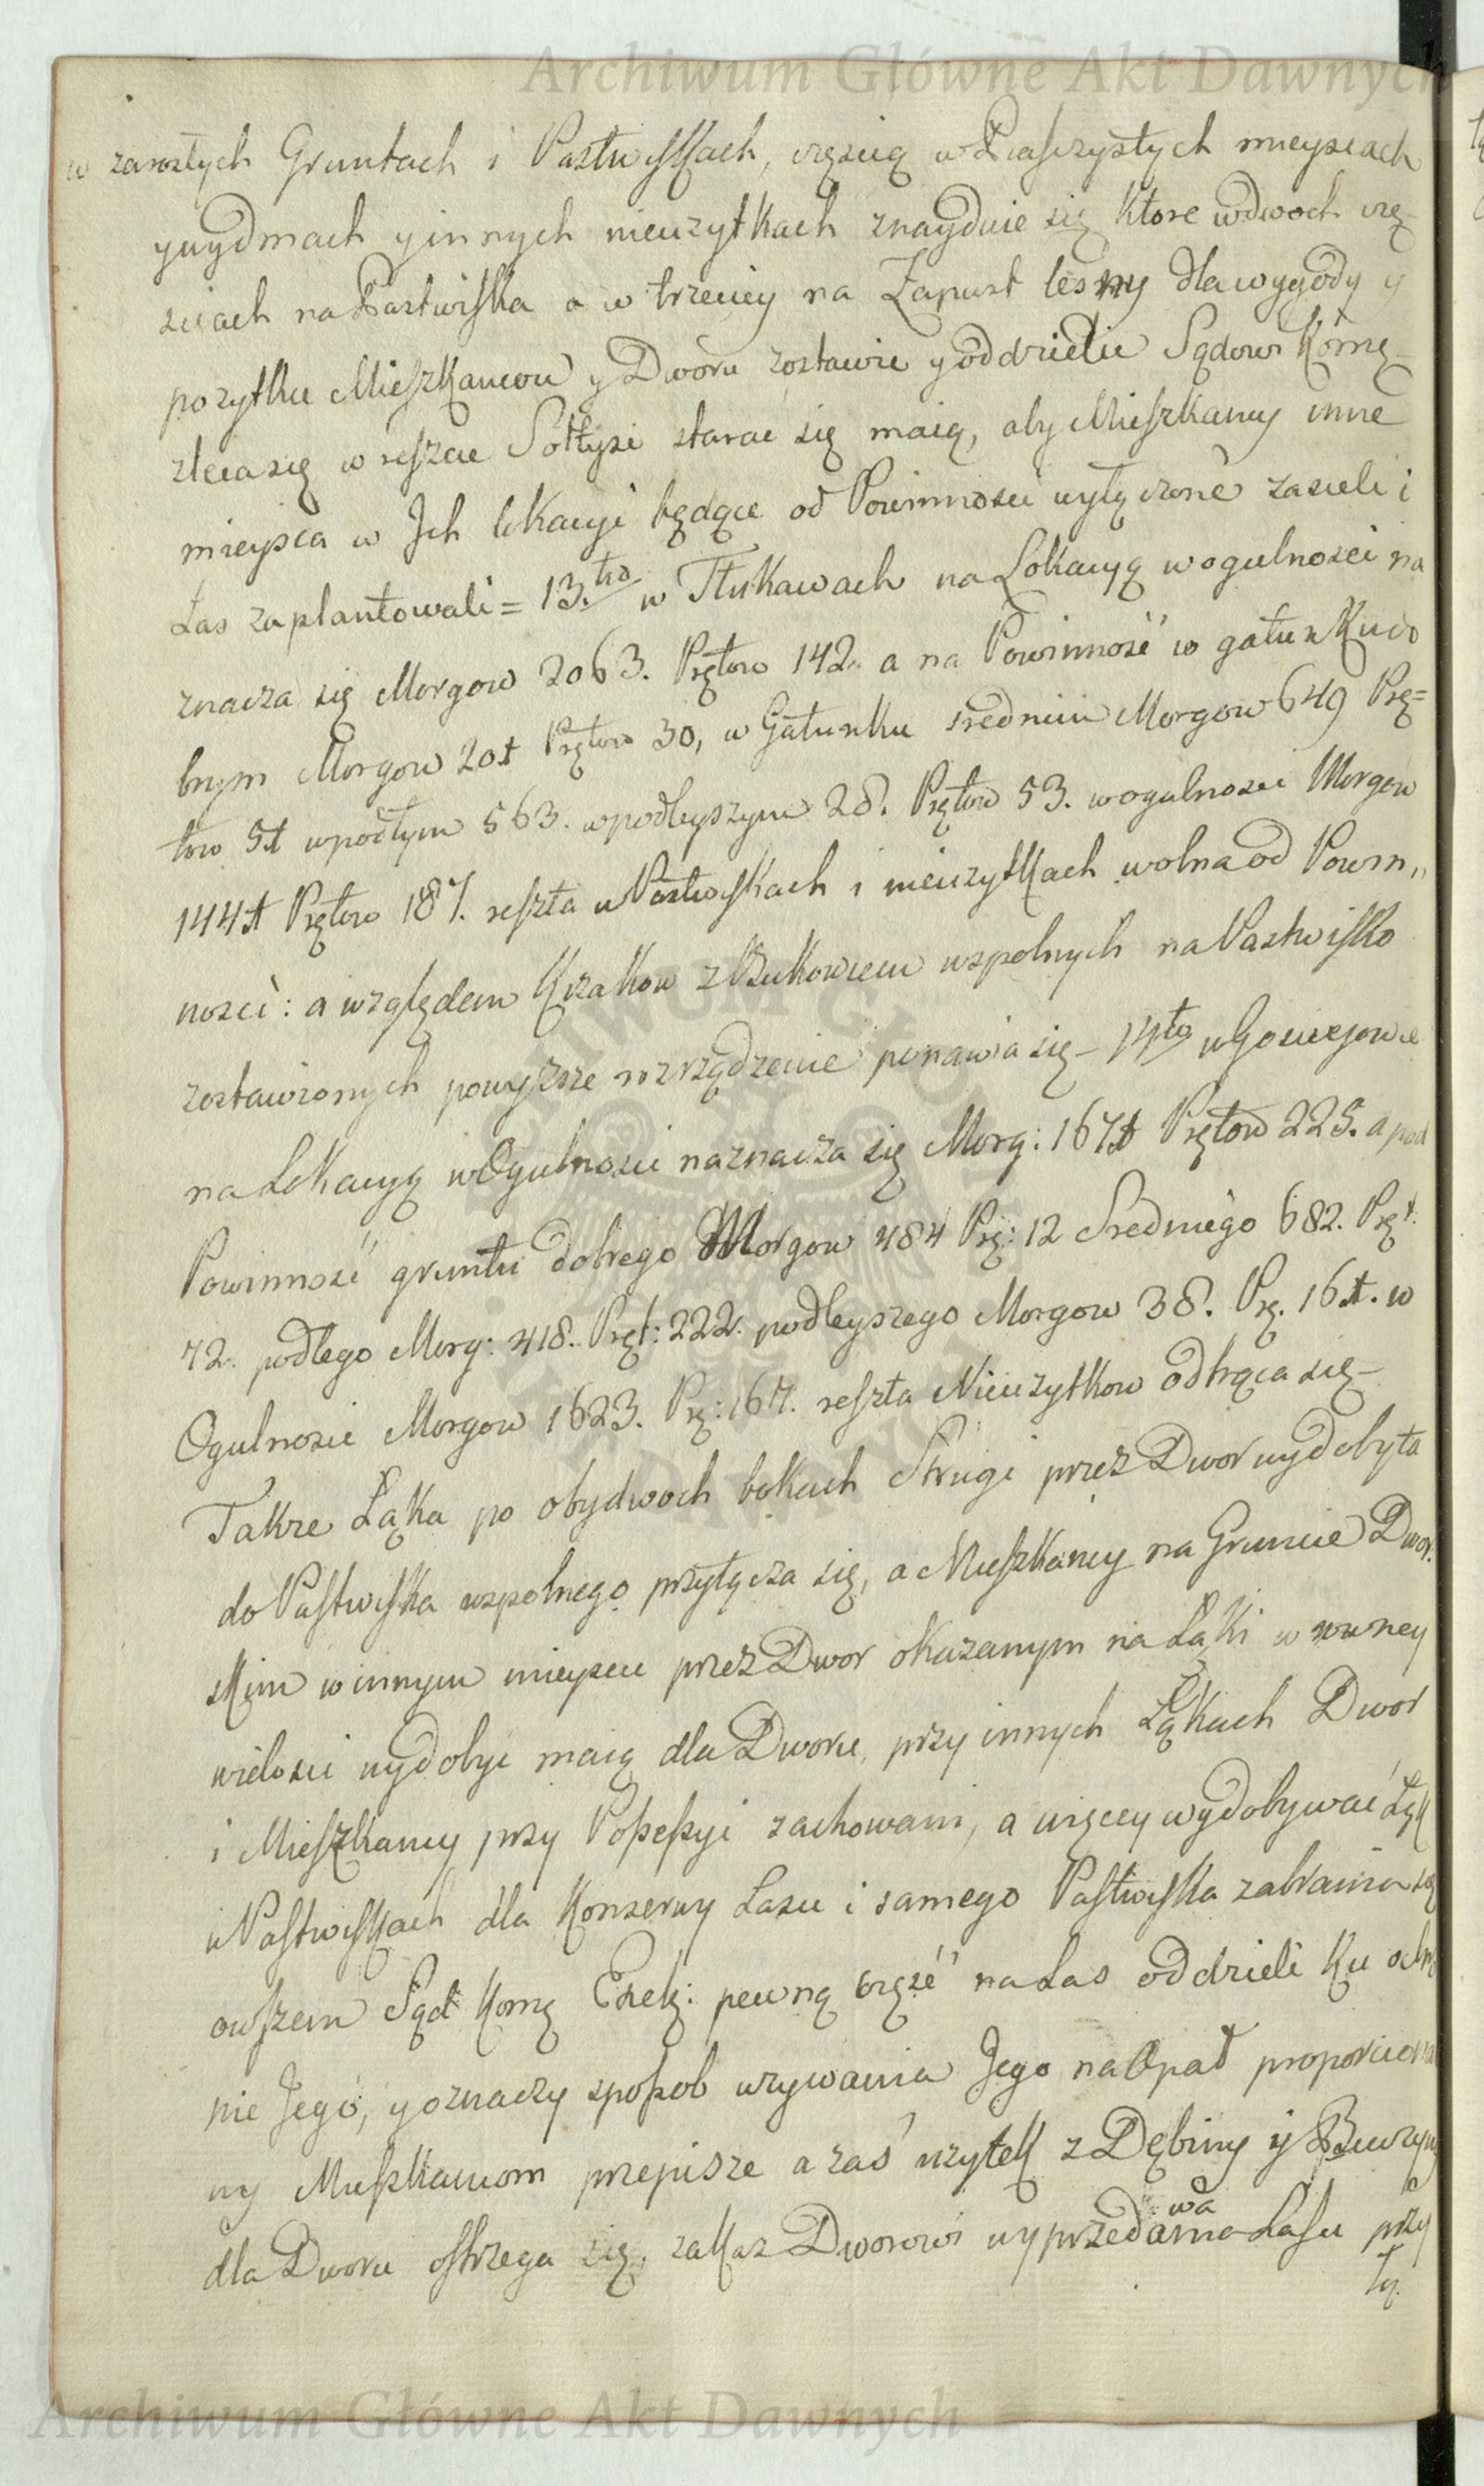 Archiwum Główne Akt Dawnych
w zarosłych Gruntach i Pastwiskach, częścią w Piaszczystych mieyscach
y wydmach y innych nieuzytkach znayduie się które w dwoch czę-
sciach na Pastwiska a w trzeciey na Zapust lesny dla wygody y
pozytku Mieszkancow y Dworu zostawie y oddzielic Sądowi Komę
zleca się w reszcie Sołtysi starac się maią, aby Mieszkancy inne
mieysca w Jch lokacyi będące od Powinnosci wyłączone zasieli i
Las zaplantowali = 13.tio w Tłukawach na Lokacyą w ogulnosci na
znacza się Morgow 2063. Prętow 142. a na Powinnosć w gatunku do
brym Morgow 201 Prętow 30, w Gatunku srednim Morgow 649 Prę=
tow 51 w podłym 563. w podleyszym 28. Prętow 53. w ogulnosci Morgow
1441 Prętow 187. reszta w Pastwiskach i nieuzytkach wolna od Powin„
nosci: a względem Krzakow z Bukowcem wspolnych na Pastwisko
zostawionych powyzsze rozrządzenie ponawia się – 14to w Gosciejowie
na Lokacyą w Ogulnosci naznacza się Morg: 1671 Prętow 225. a pod
Powinnosć gruntu dobrego Morgow 484 Prę: 12 Sredniego 682. Pręt:
72. podłego Morg: 418. Pręt: 222. podleyszego Morgow 38. Prę. 161. w
Ogulnosci Morgow 1623. Prę: 167. reszta Nieuzytkow odtrąca się –
Takze Łąka po obydwoch bokach Strugi przez Dwor wydobyta
do Pastwiska wspolnego przyłącza się, a Mieszkancy na Gruncie Dwor.
skim w innym mieyscu przez Dwor okazanym na Łąki w rowney
wielosci wydobyc maią dla Dworu, przy innych Łąkach Dwor
i Mieszkancy przy Possessyi zachowani, a więcey wydobywać Łąk
w Pastwiskach dla Konserwy Lasu i samego Pastwiska zabrania się
owszem Sąd Komę Exek: pewną część na Las oddzieli ku ochro
nie Jego, y oznaczy sposob uzywania Jego na Opał proporciona
ny Mieszkancom przepisze a zaś uzytek z Dębiny y Buczyny
dla Dworu ostrzega się, zakaz Dworowi wyprzedawa Lasu przy
ty.
Archiwum Główne Akt Dawnych